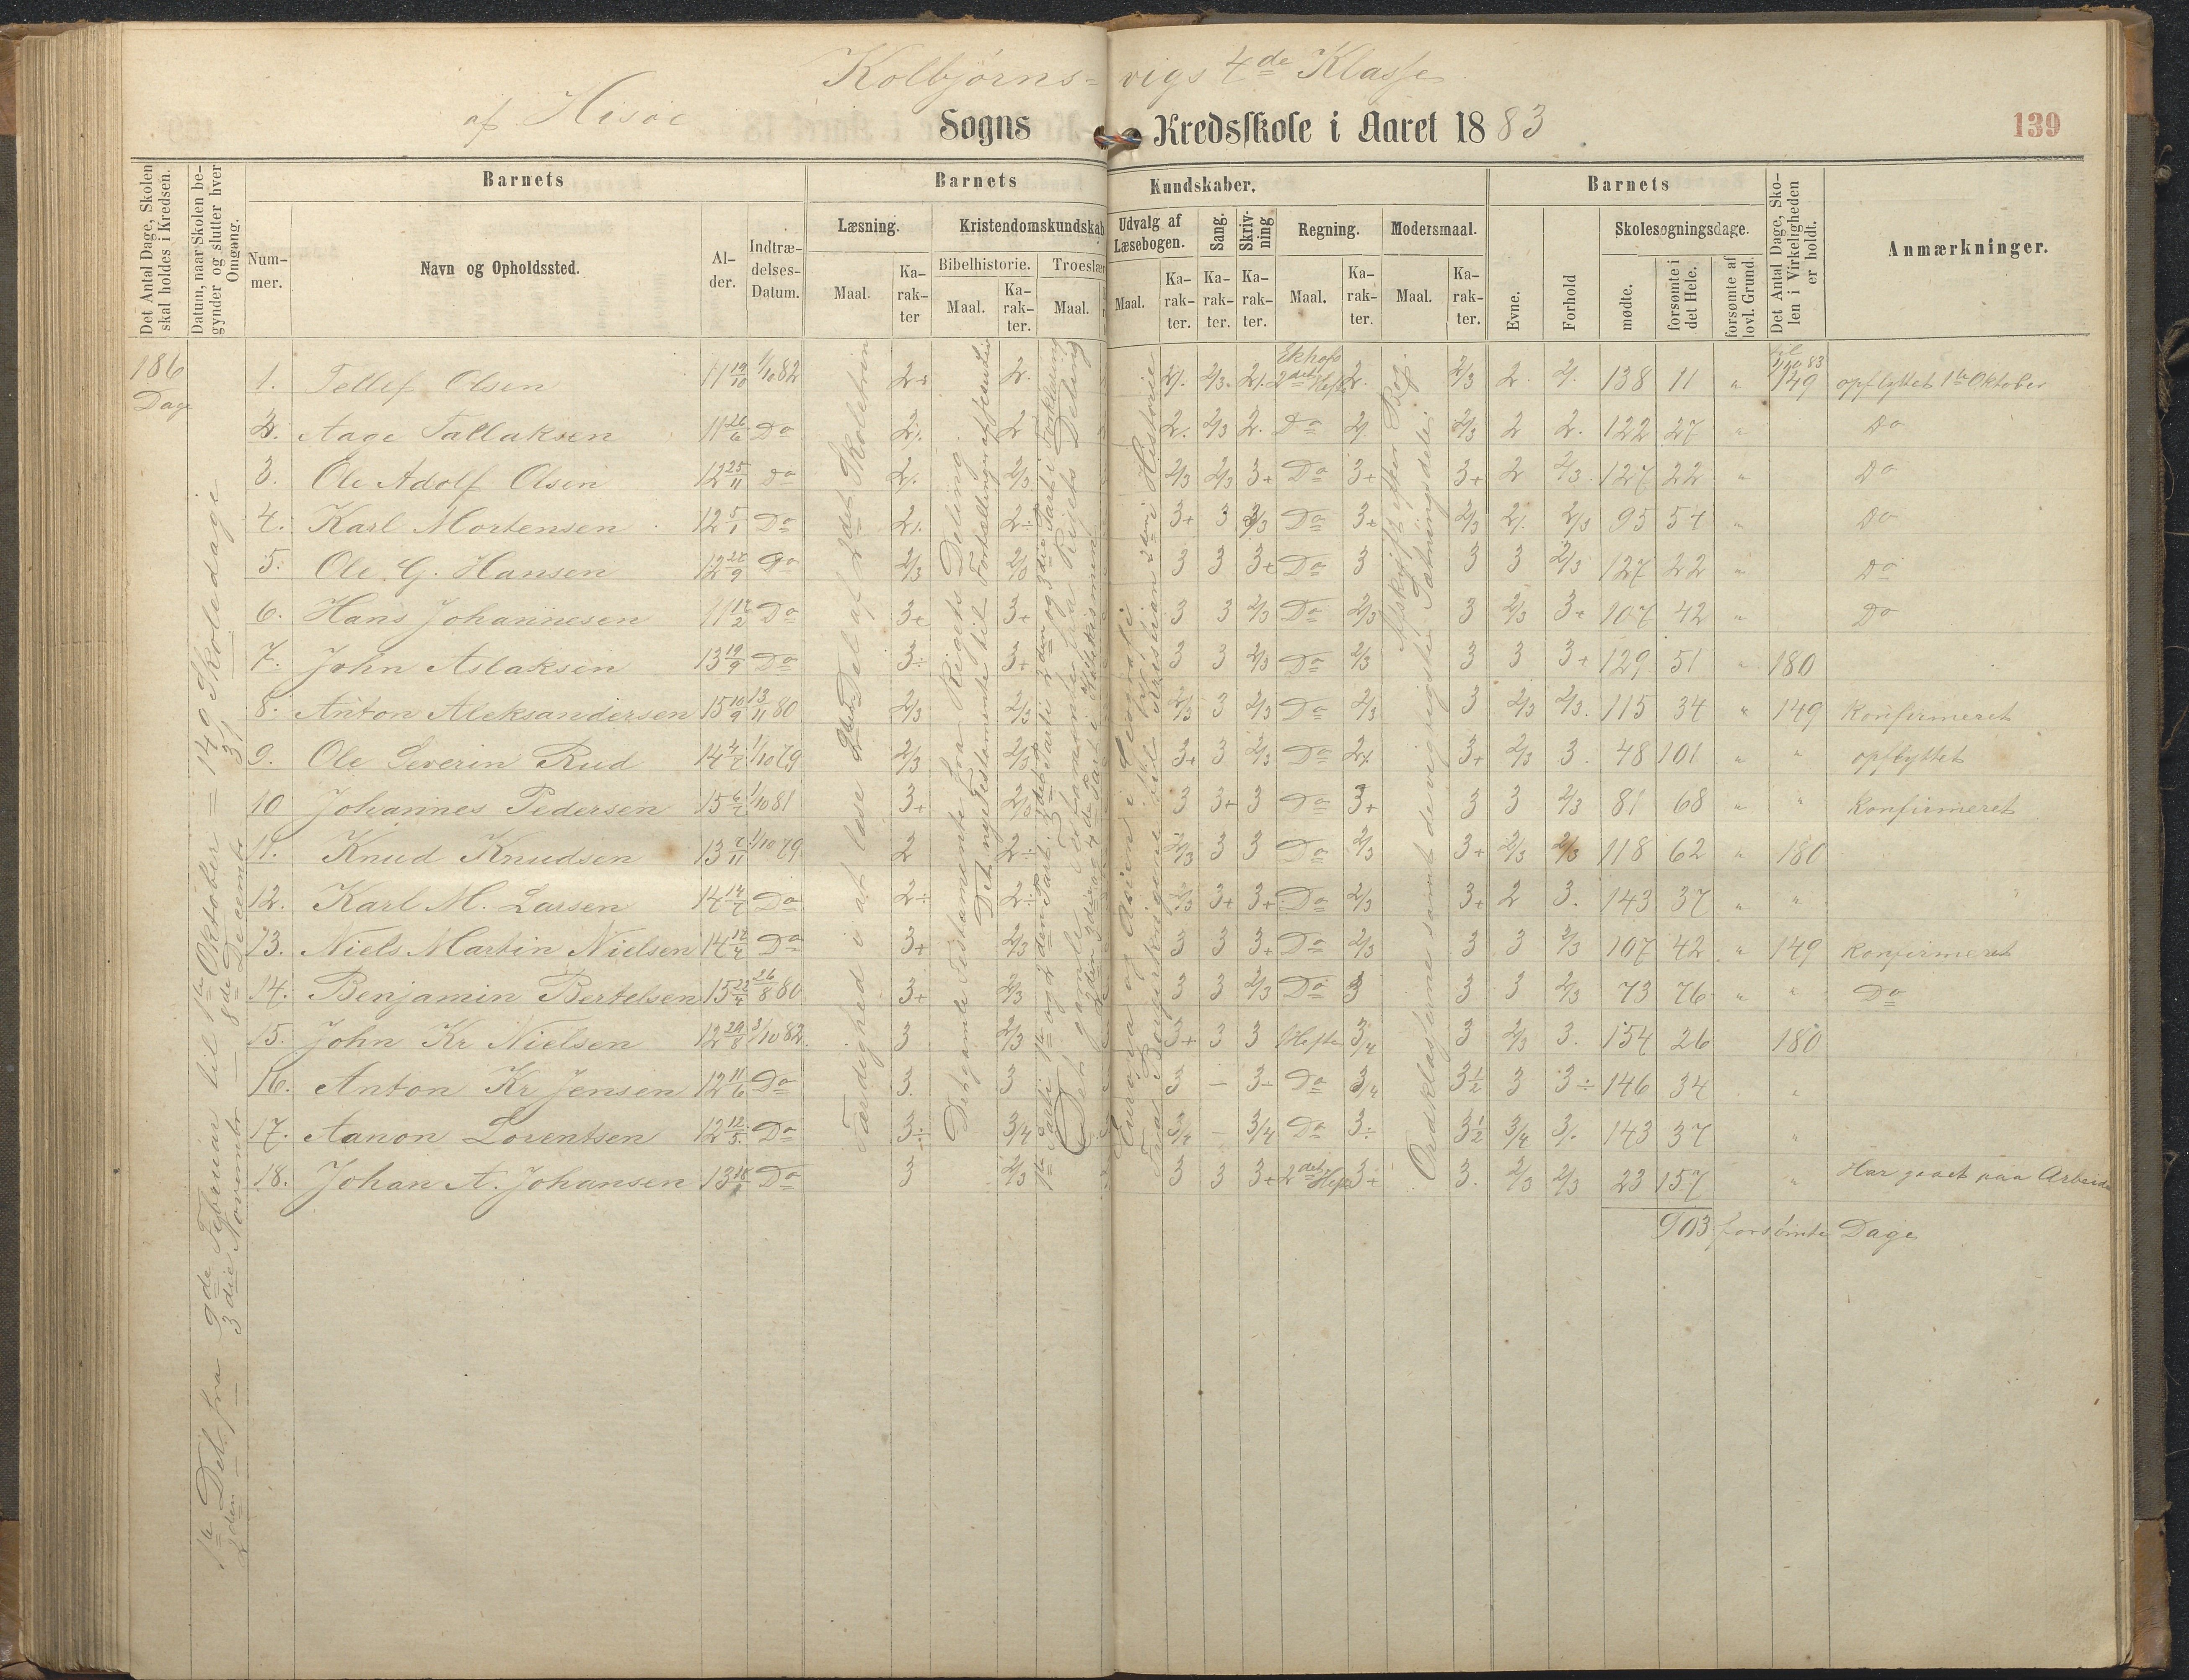 Kolbjørns= vigs 4de Klasse
af Hisøe Sogns Kredsskole i Aaret 1883 139
Det Antal Dage, Skolen skal holdes i Kredsen.
Datum, naar Skolen begynder og slutter hver Omgang.
Barnets
Nummer.
Navn og Opholdssted.
Alder.
Indtrædelses-Datum.
Barnets Kundskaber.
Læsning.
Maal. Karakter
Kristendomskundskab
Bibelhistorie. Troeslær
Maal. Karakter. Maal.
Udvalg af Læsebogen.
Maal. Karakter.
Sang. Karakter.
Skrivning Karakter.
Regning.
Maal. Karakter.
Modersmaal.
Maal. Karakter.
Barnets
Evne. Forhold
Skolesøgningsdage.
mødte. forsømte i det Hele. forsømte af lovl. Grund.
Det Antal Dage, Skolen i Virkeligheden er holdt.
Anmærkninger.
186 Dage
1ste Del fra 9de Februar til 1ste Oktober = 149 Skoledage
2den — 3die Novembr — 8de Decembr 31
Færdighed i at læse 2den Del af 2det Skoletrin
Det gamle Testamente fra Rigets Deling.
Det nye Testamente til Fortællinger
Europa og Asien i Geografi
Afskrift efter Bog.
Ordklasserne samt de vigtigste Sætningsdele
1. Tellef Olsen 11 19/10 1/10 82 2÷ 2. 2/. 2/3. 2/. Ekhofs 2det Hefte 2. 2/3 2. 2/. 138 11 " til 1/10 83 149 opflyttet 1ste Oktober
2. Aage Tallaksen 11 26/6 Do 2/. 2 2. 2/3 2. Do 2/. 2/3 2 2. 122 27 " Do
3. Ole Adolf Olsen 12 25/11 Do 2/. 2/3 2/3 2/3 3+ Do 3+ 3+ 2 2/3. 127 22 " Do
4. Karl Mortensen 12 5/1 Do 2/. 2÷ 3+ 3 2/3 Do 3+ 2/3 2/. 2/3 95 54 " Do
5. Ole G. Hansen 12 22/9 Do 2/3 2/3 3 3 3+ Do 3 3 3 2/3 127 22 " Do
6. Hans Johannesen 11 17/2 Do 3+ 3+ 3 3 2/3 Do 2/3 3 2/3 3+ 107 42 " Do
7. John Aslaksen 13 19/9 Do 3÷ 3+ 3 3 2/3 Do 2/3 3 3 3+ 129 51 " 180
8. Anton Aleksandersen 15 10/9 13/11 80 2/3 2/3 2/3 3 2/3 Do 2/3 3 2/3 2/3. 115 34 " 149 Konfirmeret
9. Ole Severin Rud 14 4/7 1/10 79 2/3 2/3 3+ 3 2/3 Do 2/. 3+ 2/3 3. 48 101 " " opflyttet
10 Johannes Pedersen 15 6/7 1/10 81 3+ 2/3 3 3+ 3 Do 3+ 3 3 2/3 81 68 " " Konfirmeret
11. Knud Knudsen 13 7/11 1/10 79 2 2÷ 2/3 3 3 Do 2/3 3+ 2/3 2/3 118 62 " 180
12. Karl M. Larsen 14 14/7 Do 2÷ 2÷ 2/3 3+ 3+ Do 2/3 3+ 2 3. 143 37 " "
13. Niels Martin Nielsen 14 17/4 Do 3+ 2/3 3 3 3+ Do 2/3 3 3 2/3 107 42 " 149 Konfirmeret
14. Benjamin Bertelsen 15 22/4 26/8 80 3+ 2/3 3 3 2/3 Do 3 3 3 2/3 73 76 " " Do
15. John Kr Nielsen 12 29/8 3/10 82 3 2/3 3+ 3 3 1 Hefte 3/4 3 2/3 3. 154 26 180
16. Anton Kr Jensen 12 11/6 Do 3. 3 3 – 3÷ Do 3/4 3½ 3 3÷ 146 34 "
17. Aanon Lorentsen 12 12/5. Do 3÷ 3/4 3/4 – 3/4 Do 3÷ 3½ 3/4 3/. 143 37 "
18. Johan A. Johansen 13 Do 3 2/3 3 3 3+ 2det Hefte 3+ 3. 2/3 2/3 23 157 " Har gaaet paa Arbeide
903 forsømte Dage